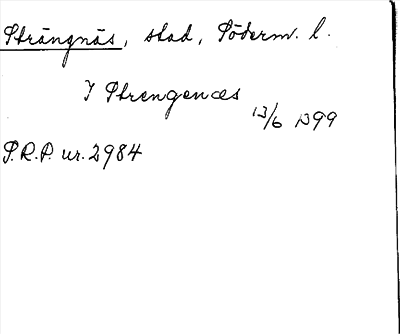 Strängnäs, stad, Söderm. l.
I Strengenæs
13/6 1399
S.R.P. nr. 2984